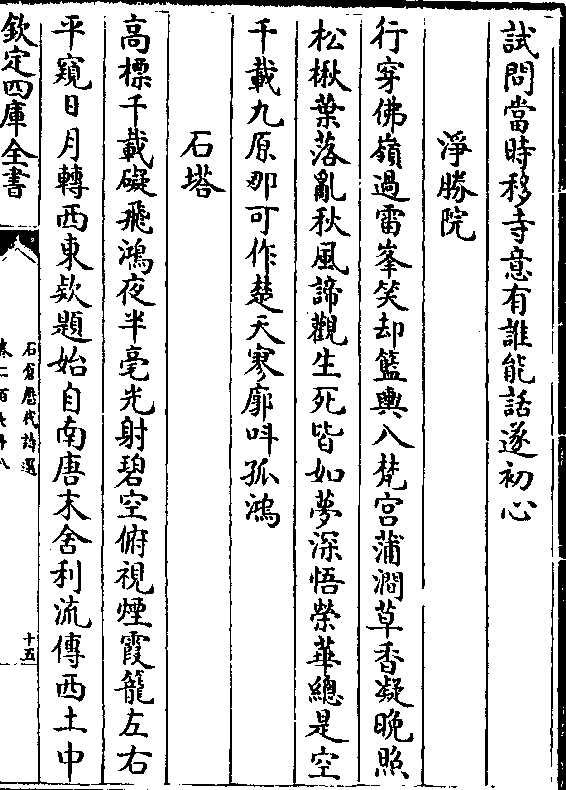 試問當時移寺意有誰能話遂初心
淨勝院
行穿佛嶺過雷峯笑却籃輿入梵宫蒲澗草香凝晚照
松楸葉落亂秋風諦觀生死皆如夢深悟榮華總是空
千載九原那可作楚天寥廓叫孤鴻
石塔
高標千載礙飛鴻夜半毫光射碧空俯視煙霞籠左右
平窺日月轉西東欵題始自南唐末舍利流傳西土中
欽定四庫全書
石倉歷代詩選
十五